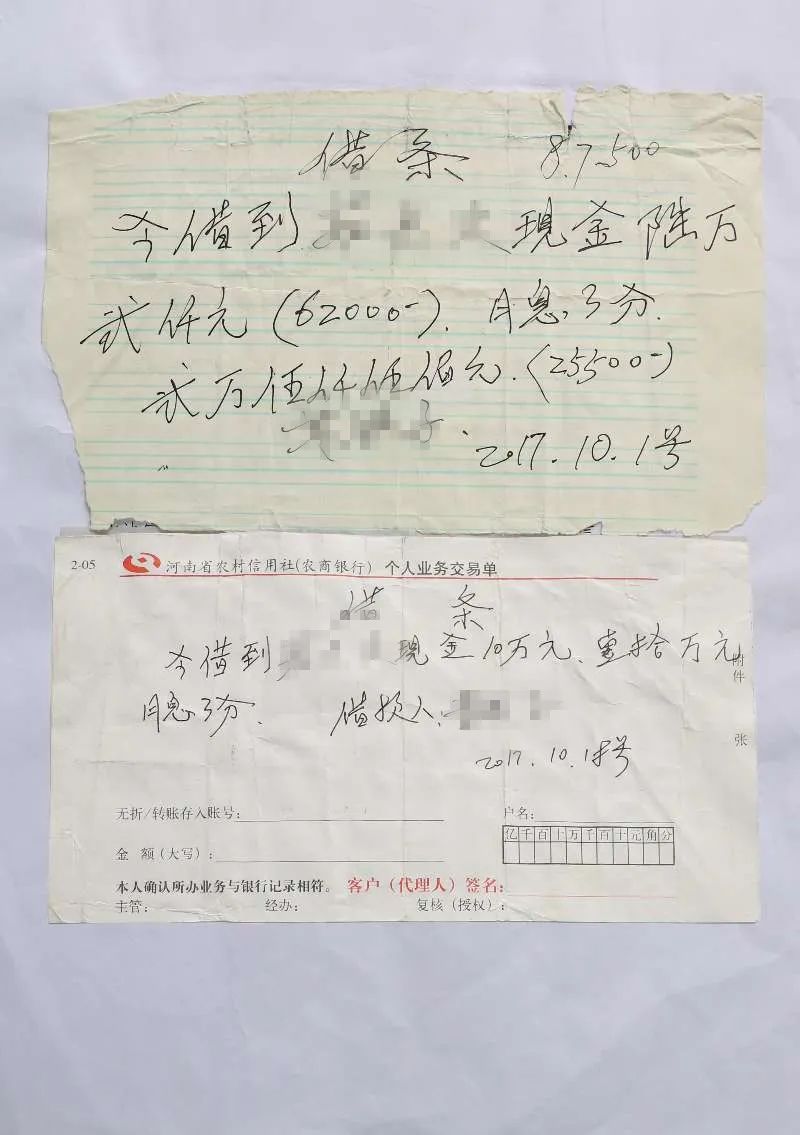 借条 8.7500
今借到 现金陆万
贰仟元(62000-). 月息3分.
贰万伍仟伍佰元.(25500-)
2017.10.1号
2-05 河南省农村信用社(农商银行) 个人业务交易单
借条
今借到 现金10万元、壹拾万元
附件 张
月息3分. 借款人:
2017.10.1号
无折/转账存入账号: 户名:
亿千百十万千百十元角分
金 额(大写):
本人确认所办业务与银行记录相符。 客户(代理人)签名:
主管: 经办: 复核(授权):